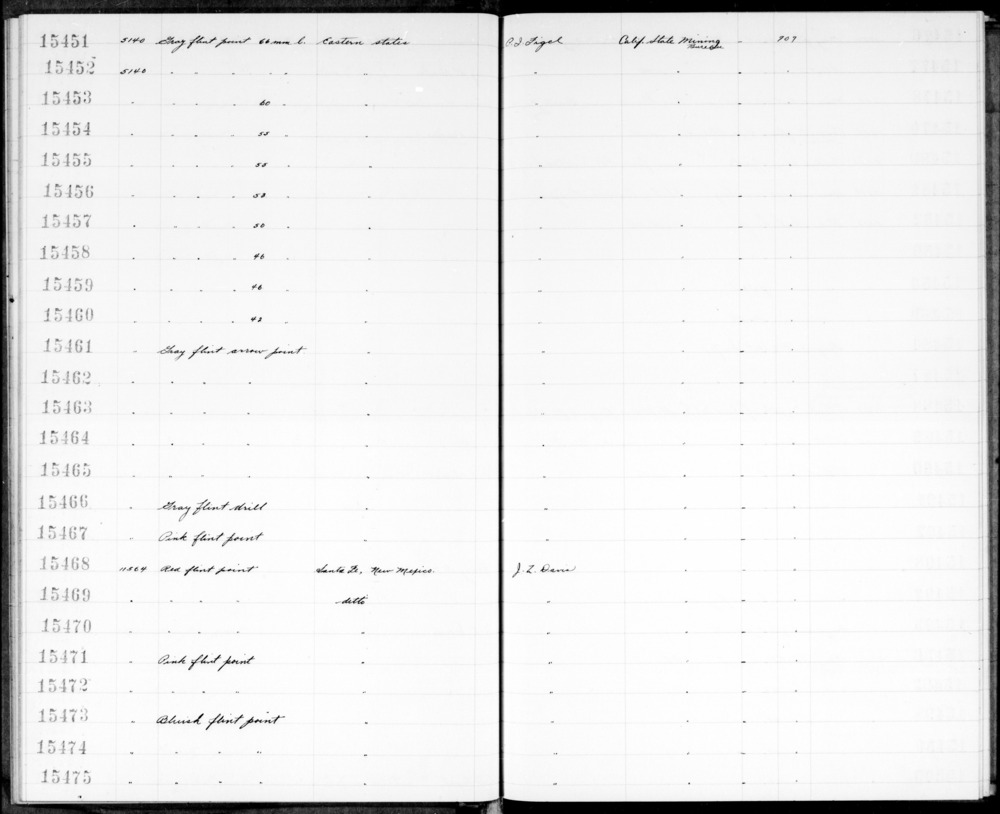 15451 5140 Gray flint point 66 mm l. Eastern states C. J. Figel Calif. State Mining Bureau - 709
15452 5140 . . . . . . " " . - .
15453 . . . . . 60 . . " . - .
15454 . . . . . 55 . . " . - .
15455 . . . . . 55 . . " . - .
15456 . . . . . 53 . . " . - .
15457 . . . . . 50 . . " . - .
15458 . . . . . 46 . . " . - .
15459 . . . . . 46 . . " . - .
15460 . . . . . 43 . . " . - .
15461 " Gray flint arrow point . " . - .
15462 . . . . . . " . - .
15463 . . . . . . " . - .
15464 . . . . . . " . - .
15465 . . . . . . " . - .
15466 " Gray flint drill . " . - .
15467 " Pink flint point . " . - .
15468 11564 Red flint point Santa Fe, New Mexico. J. L. Davis . - .
15469 . . . . . ditto " . - .
15470 . . . . . " " . - .
15471 . Pink flint point . " . - .
15472 . . . . " " " . - .
15473 " Bluish flint point " " . - .
15474 . . . . " . " . - .
15475 . . . . . . " . - .